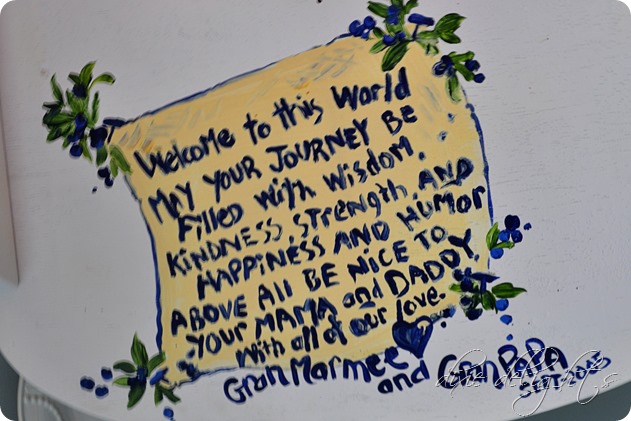 Welcome to this World
MAY YOUR JOURNEY BE
Filled with Wisdom.
KINDNESS StrengtH AND
HAPPINESS AND HUMOR
ABOVE All BE NICE TO
YOUR MAMA and DADDY
With all of our Love.
GranMarmee
and GranPAPA
SEPT.